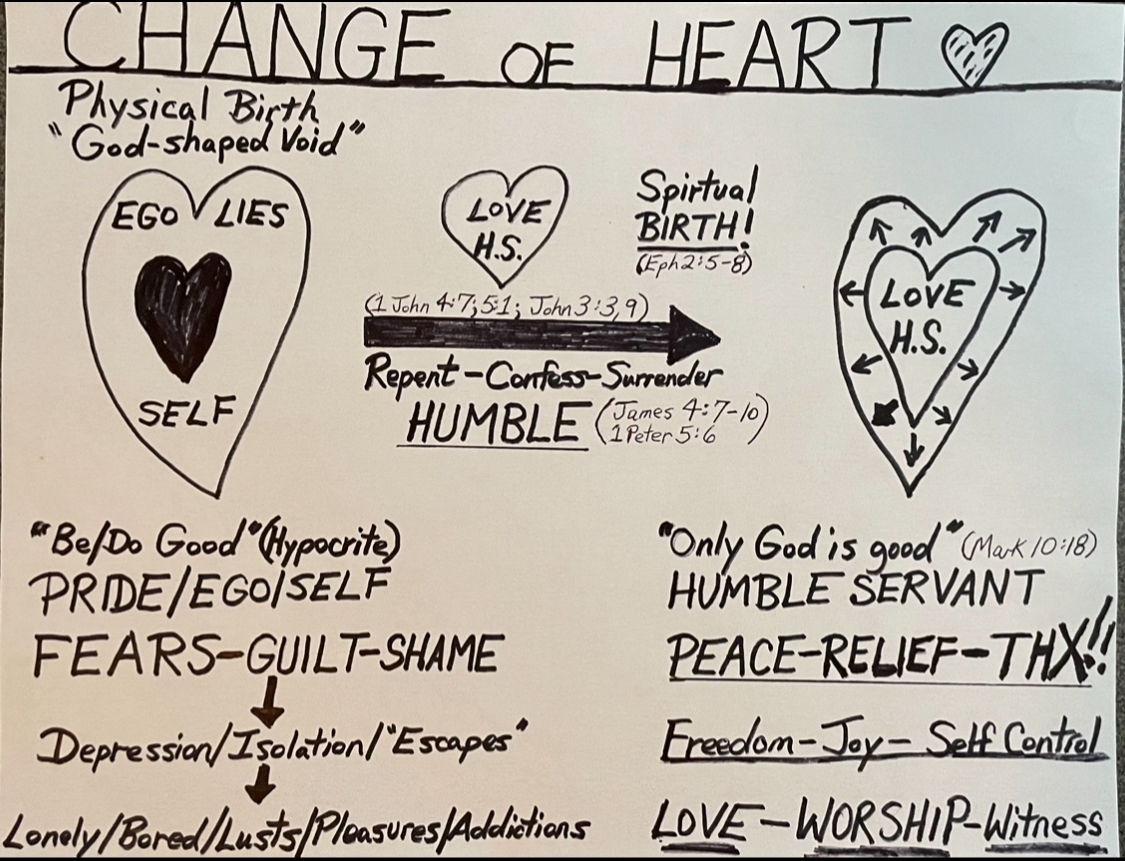 CHANGE OF HEART
Physical Birth
"God-shaped Void"
EGO LIES
SELF
LOVE
H.S.
Spirtual
BIRTH!
(Eph 2:5-8)
(1 John 4:7; 5:1; John 3:3,9)
Repent-Confess-Surrender
HUMBLE (James 4:7-10)
1 Peter 5:6
LOVE
H.S.
"Be/Do Good" (Hypocrite)
PRIDE/EGO/SELF
FEARS-GUILT-SHAME
Depression/Isolation/"Escapes"
Lonely/Bored/Lusts/Pleasures/Addictions
"Only God is good" (Mark 10:18)
HUMBLE SERVANT
PEACE-RELIEF-THX!!
Freedom-Joy-Self Control
LOVE-WORSHIP-Witness